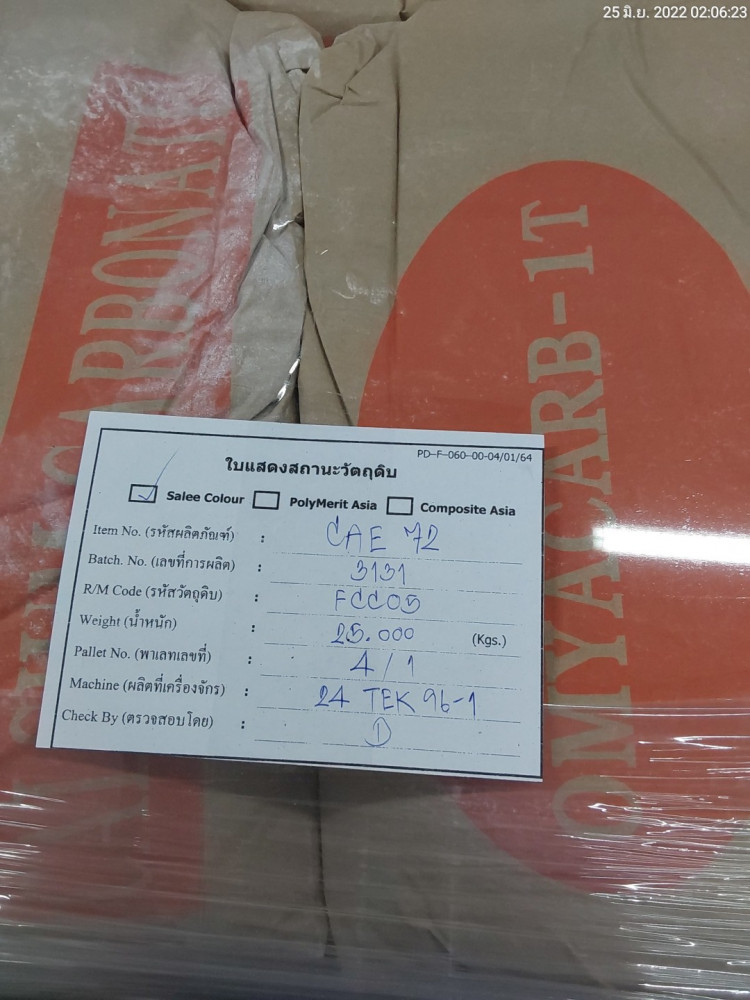 25 มิ.ย. 2022 02:06:23
CALCIUM CARBONATE
OMYACARB-1T
PD-F-060-00-04/01/64
ใบแสดงสถานะวัตถุดิบ
Salee Colour PolyMerit Asia Composite Asia
Item No. (รหัสผลิตภัณฑ์) : CAE 72
Batch. No. (เลขที่การผลิต) : 3131
R/M Code (รหัสวัตถุดิบ) : FCC05
Weight (น้ำหนัก) : 25.000 (Kgs.)
Pallet No. (พาเลทเลขที่) : 4/1
Machine (ผลิตที่เครื่องจักร) : 24 TEK 96-1
Check By (ตรวจสอบโดย) :